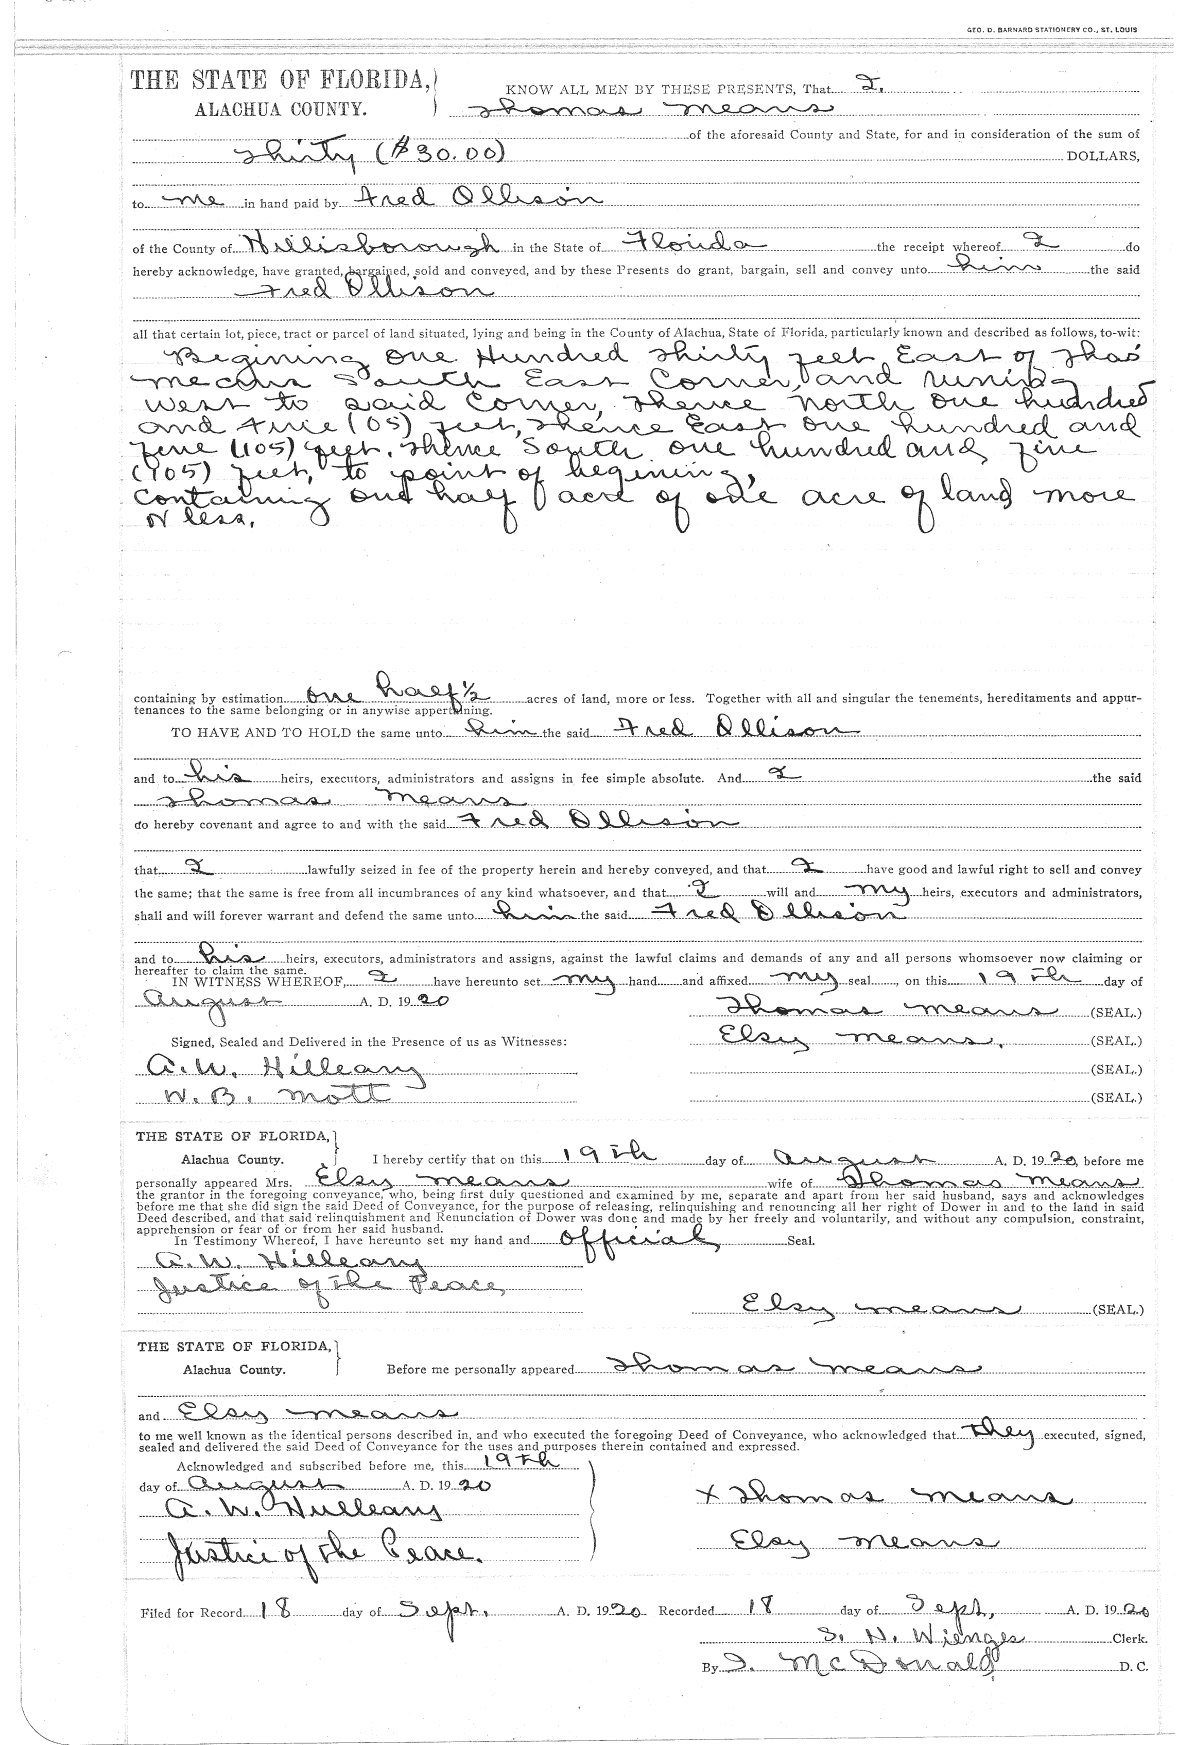 GEO. D. BARNARD STATIONERY CO., ST. LOUIS
THE STATE OF FLORIDA,
KNOW ALL MEN BY THESE PRESENTS, That I,
ALACHUA COUNTY.
Thomas Means
of the aforesaid County and State, for and in consideration of the sum of
Thirty ($30.00) DOLLARS,
to me in hand paid by Fred Ollison
of the County of Hillisborough in the State of Florida the receipt whereof I do
hereby acknowledge, have granted, bargained, sold and conveyed, and by these Presents do grant, bargain, sell and convey unto him the said
Fred Ollison
all that certain lot, piece, tract or parcel of land situated, lying and being in the County of Alachua, State of Florida, particularly known and described as follows, to-wit:
Begining One Hundred Thirty feet East of Thos
means South East Corner, and runing
West to said Corner, Thence North one hundred
and five (105) feet, Thence East one hundred and
five (105) feet. Thence South one hundred and five
(105) feet, to point of begining,
Containing one half acre of one acre of land more
or less.
containing by estimation one half ½ acres of land, more or less. Together with all and singular the tenements, hereditaments and appur-
tenances to the same belonging or in anywise appertaining.
TO HAVE AND TO HOLD the same unto him the said Fred Ollison
and to his heirs, executors, administrators and assigns in fee simple absolute. And I the said
Thomas Means
do hereby covenant and agree to and with the said Fred Ollison
that I lawfully seized in fee of the property herein and hereby conveyed, and that I have good and lawful right to sell and convey
the same; that the same is free from all incumbrances of any kind whatsoever, and that I will and my heirs, executors and administrators,
shall and will forever warrant and defend the same unto him the said Fred Ollison
and to his heirs, executors, administrators and assigns, against the lawful claims and demands of any and all persons whomsoever now claiming or
hereafter to claim the same.
IN WITNESS WHEREOF, I have hereunto set my hand and affixed my seal, on this 19th day of
August A. D. 1920
Thomas Means (SEAL.)
Signed, Sealed and Delivered in the Presence of us as Witnesses:
Elsy Means, (SEAL.)
A. W. Hilleary (SEAL.)
W. B. Mott (SEAL.)
THE STATE OF FLORIDA,
Alachua County. I hereby certify that on this 19th day of August A. D. 1920, before me
personally appeared Mrs. Elsy Means wife of Thomas Means
the grantor in the foregoing conveyance, who, being first duly questioned and examined by me, separate and apart from her said husband, says and acknowledges
before me that she did sign the said Deed of Conveyance, for the purpose of releasing, relinquishing and renouncing all her right of Dower in and to the land in said
Deed described, and that said relinquishment and Renunciation of Dower was done and made by her freely and voluntarily, and without any compulsion, constraint,
apprehension or fear of or from her said husband.
In Testimony Whereof, I have hereunto set my hand and official Seal.
A. W. Hilleary
Justice of the Peace,
Elsy Means (SEAL.)
THE STATE OF FLORIDA,
Alachua County. Before me personally appeared Thomas Means
and Elsy Means
to me well known as the identical persons described in, and who executed the foregoing Deed of Conveyance, who acknowledged that they executed, signed,
sealed and delivered the said Deed of Conveyance for the uses and purposes therein contained and expressed.
Acknowledged and subscribed before me, this 19th
day of August A. D. 1920
x Thomas Means
A. W. Hilleary
Elsy Means
Justice of the Peace.
Filed for Record 18 day of Sept. A. D. 1920 Recorded 18 day of Sept, A. D. 1920
S. H. Wienges Clerk.
By I. McDonald D. C.